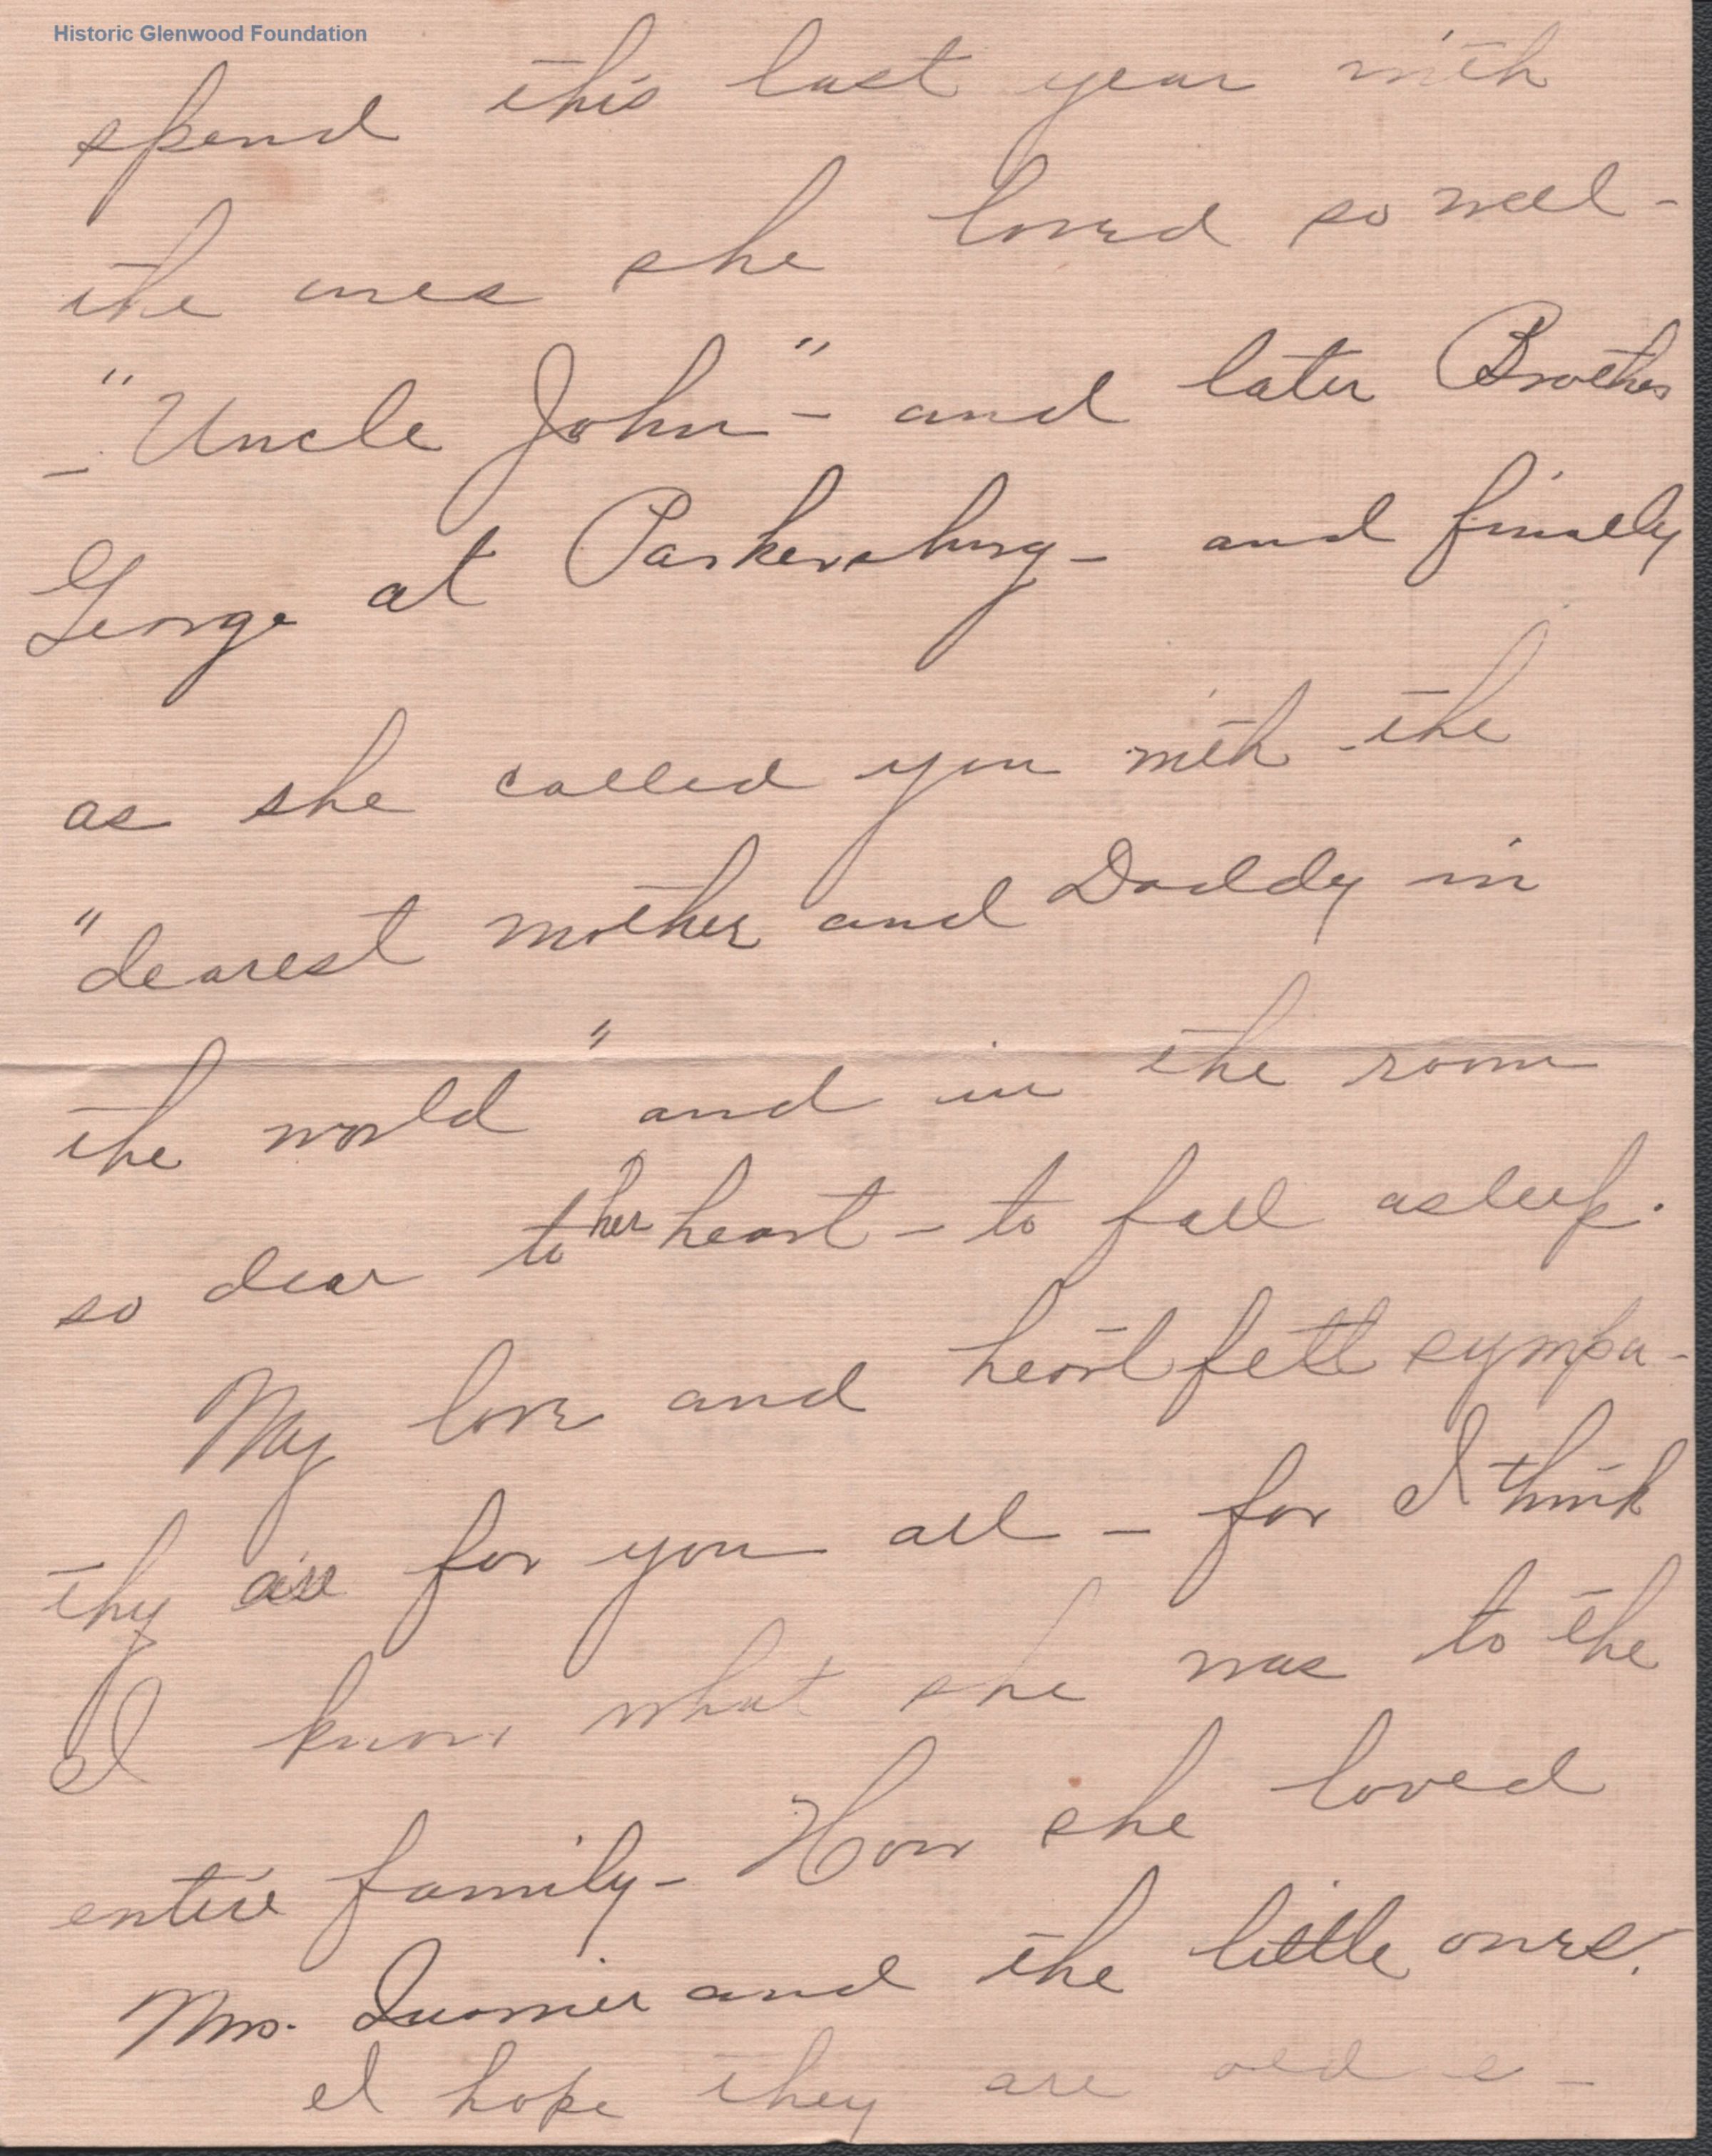 Historic Glenwood Foundation
spend this last year with
the ones she loved so well -
- "Uncle John" - and later Brother
George at Parkersburg - and finally
as she called you with the
"dearest mother and Daddy in
the world" and in the room
so dear to her heart - to fall asleep.
My love and heartfelt sympa-
thy are for you all - for I think
I know what she was to the
entire family - How she loved
Mrs. Quarrier and the little ones.
I hope they are old e -